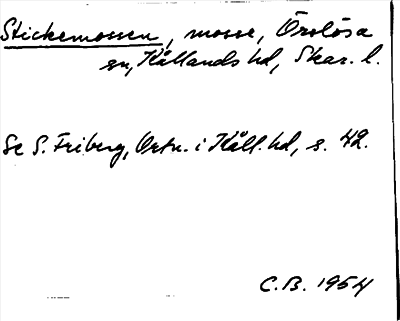 Stickemossen, mosse, Örslösa
sn, Kållands hd, Skar. l.
Se S. Friberg, Ortn. i Kåll. hd, s. 42.
C.B. 1954